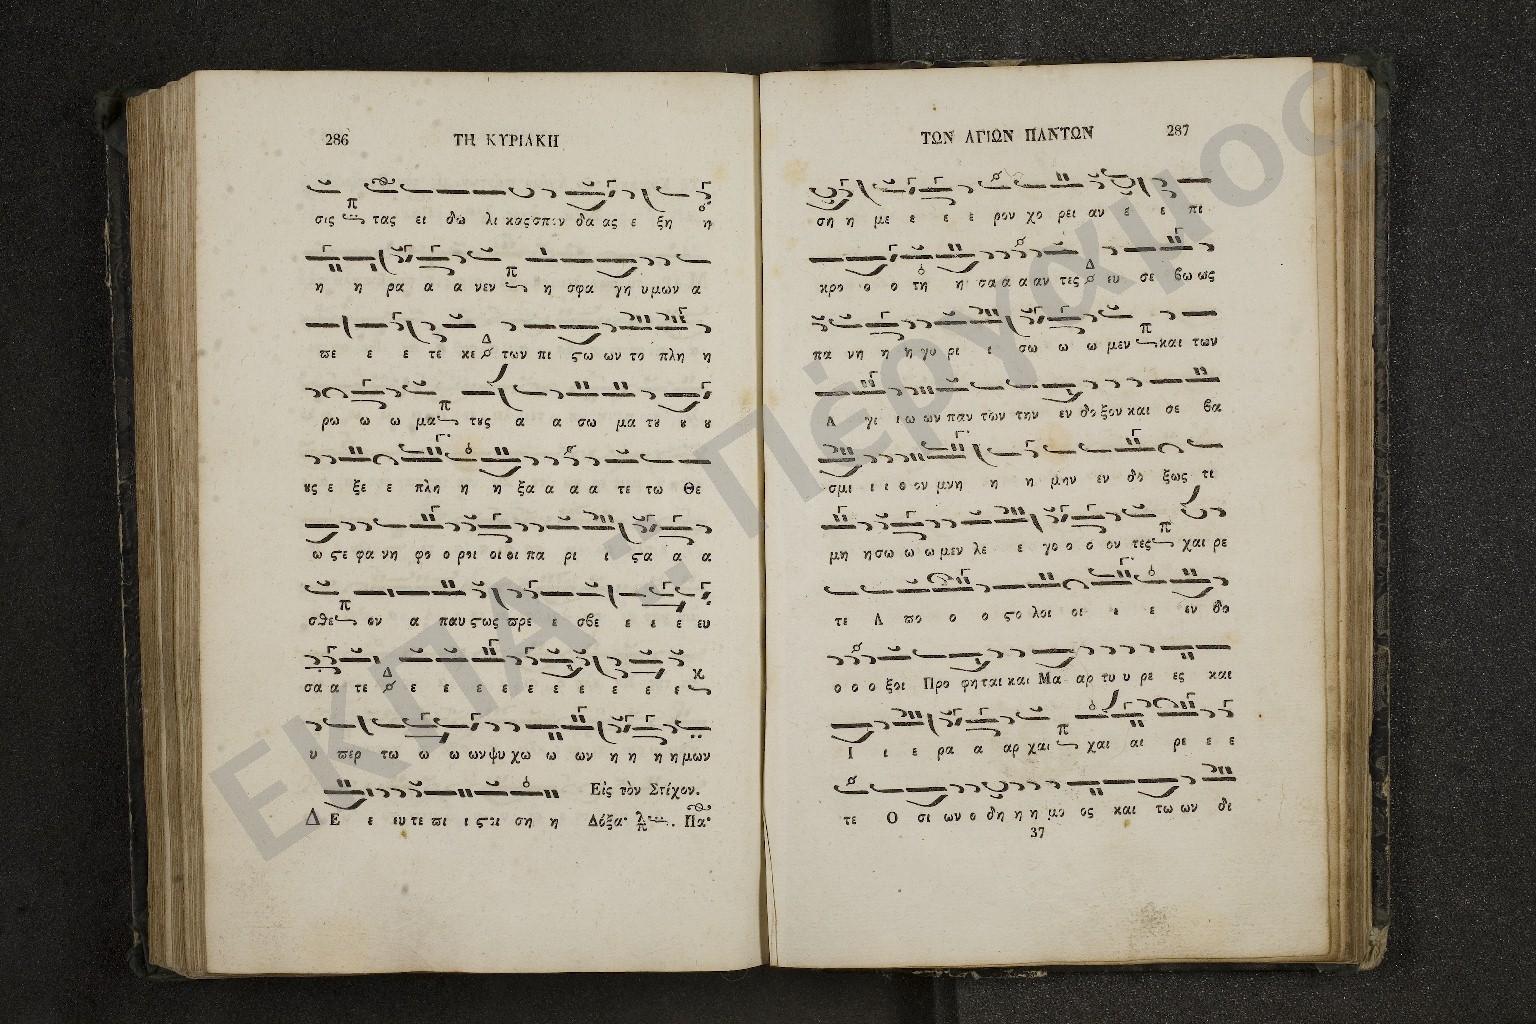 286 ΤΗ ΚΥΡΙΑΚΗ
σις τας ει δω λι κας σπον δα ας ε ξη η
η η ρα α α νεν η σφα γη υμων α
ϖε ε ε τε κε Δ των πι ϛω ων το πλη η
ρω ω ω μα π τȣς α α σω μα τȣ ȣ ȣ
ȣς ε ξε ε πλη η η ξα α α α τε τω Θε
ω ϛε φα νη φο ο ροι οι οι πα ρι ι ϛα α α
σθε π ον α παυ ϛως ϖρε ε σβε ε ε ε ευ
σα α τε Δ ε ε ε ε ε ε ε ε ε ε
υ ϖερ τω ω ω ων ψυ χω ω ων η η η η μων
Εἰς τὸν Στίχον.
Δ Ε ε ευ τε ϖι ι ϛοι ση η Δόξα· Πα·
ΤΩΝ ΑΓΙΩΝ ΠΑΝΤΩΝ 287
ση η με ε ε ε ρον χο ρει αν ε ε πι
κρο ο ο τη η σα α α αν τες Δ ευ σε βω ως
πα νη η η γυ ρι ι σω ω ω μεν π και των
Α γι ι ω ων παν των την εν δο ξον και σε βα
σμι ι ι ο ον μνη η η μην εν δο ξως τι
μη η σω ω ω μεν λε ε γο ο ο ον τες π χαι ρε
τε Α ϖο ο ο ϛο λοι οι ε ε εν δο
ο ο ο ξοι Προ φη ται και Μα αρ τυ υ ρε ες και
Ι ι ε ρα α αρ χαι π χαι αι ρε ε ε
τε Ο σι ων ο δη η η μο ος και τω ων δι
37
ΕΚΠΑ - Πέργαμος